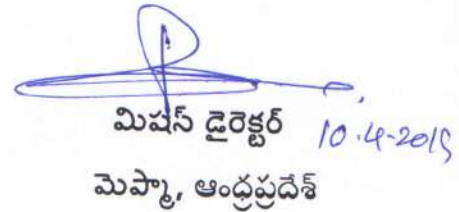 మిషన్ డైరెక్టర్ 10.4-2015
మెప్మా, ఆంధ్రప్రదేశ్